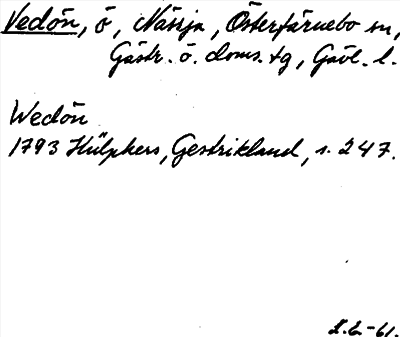 Vedön, ö, Nässja, Österfärnebo sn,
Gästr. ö. doms. tg, Gävl. l.
Wedön
1793 Hülphers, Gestrikland, s. 247.